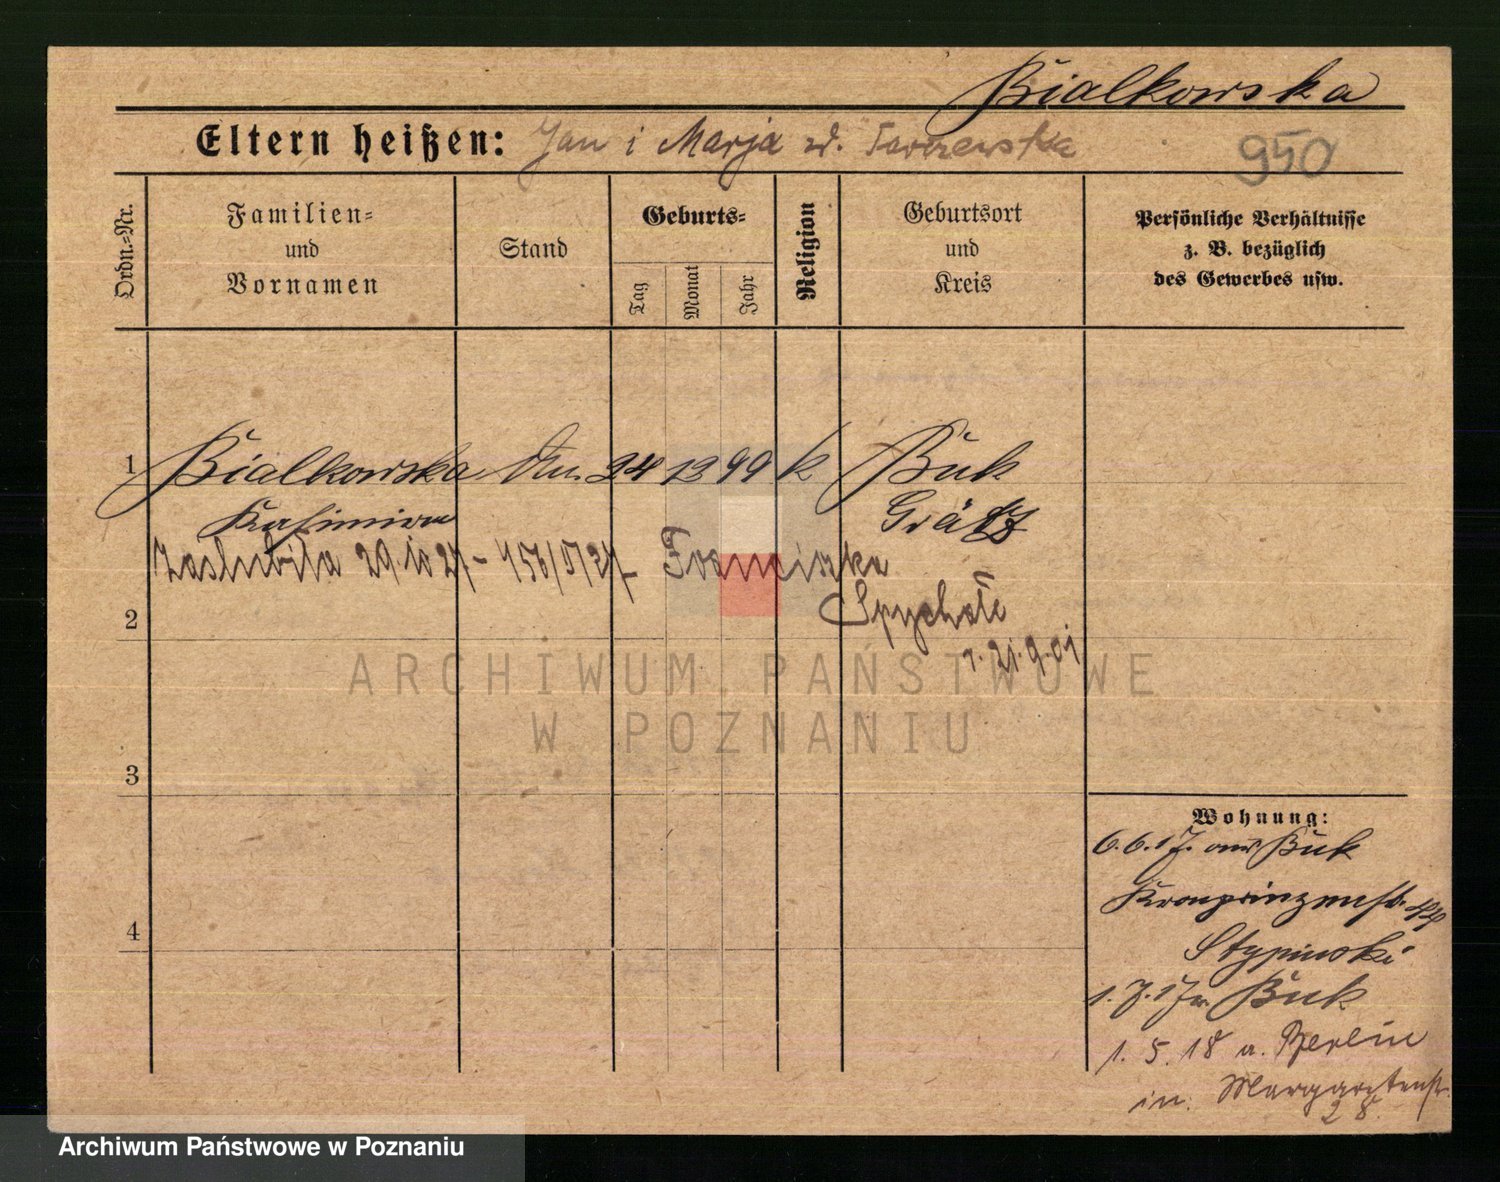 Bialkowska
Eltern heißen: Jan i Marja zd. Tarzewska
950
Ordn.=Nr.
Familien=
und
Vornamen
Stand
Geburts=
Tag
Monat
Jahr
Religion
Geburtsort
und
Kreis
Persönliche Verhältnisse
z. B. bezüglich
des Gewerbes usw.
1 Bialkowska 24 12 99 k Buk
Kasimira Grätz
Zaslubiła 29.10.27 - Franciszka
2 Spychałę
21.9.01
ARCHIWUM PAŃSTWOWE
W POZNANIU
3
4
Wohnung:
6.6.17. aus Buk
Kronprinzenstr.
Stypinski
1.7.17 n. Buk
1. 5. 18 a. Berlin
in. Margaretenstr.
28.
Archiwum Państwowe w Poznaniu